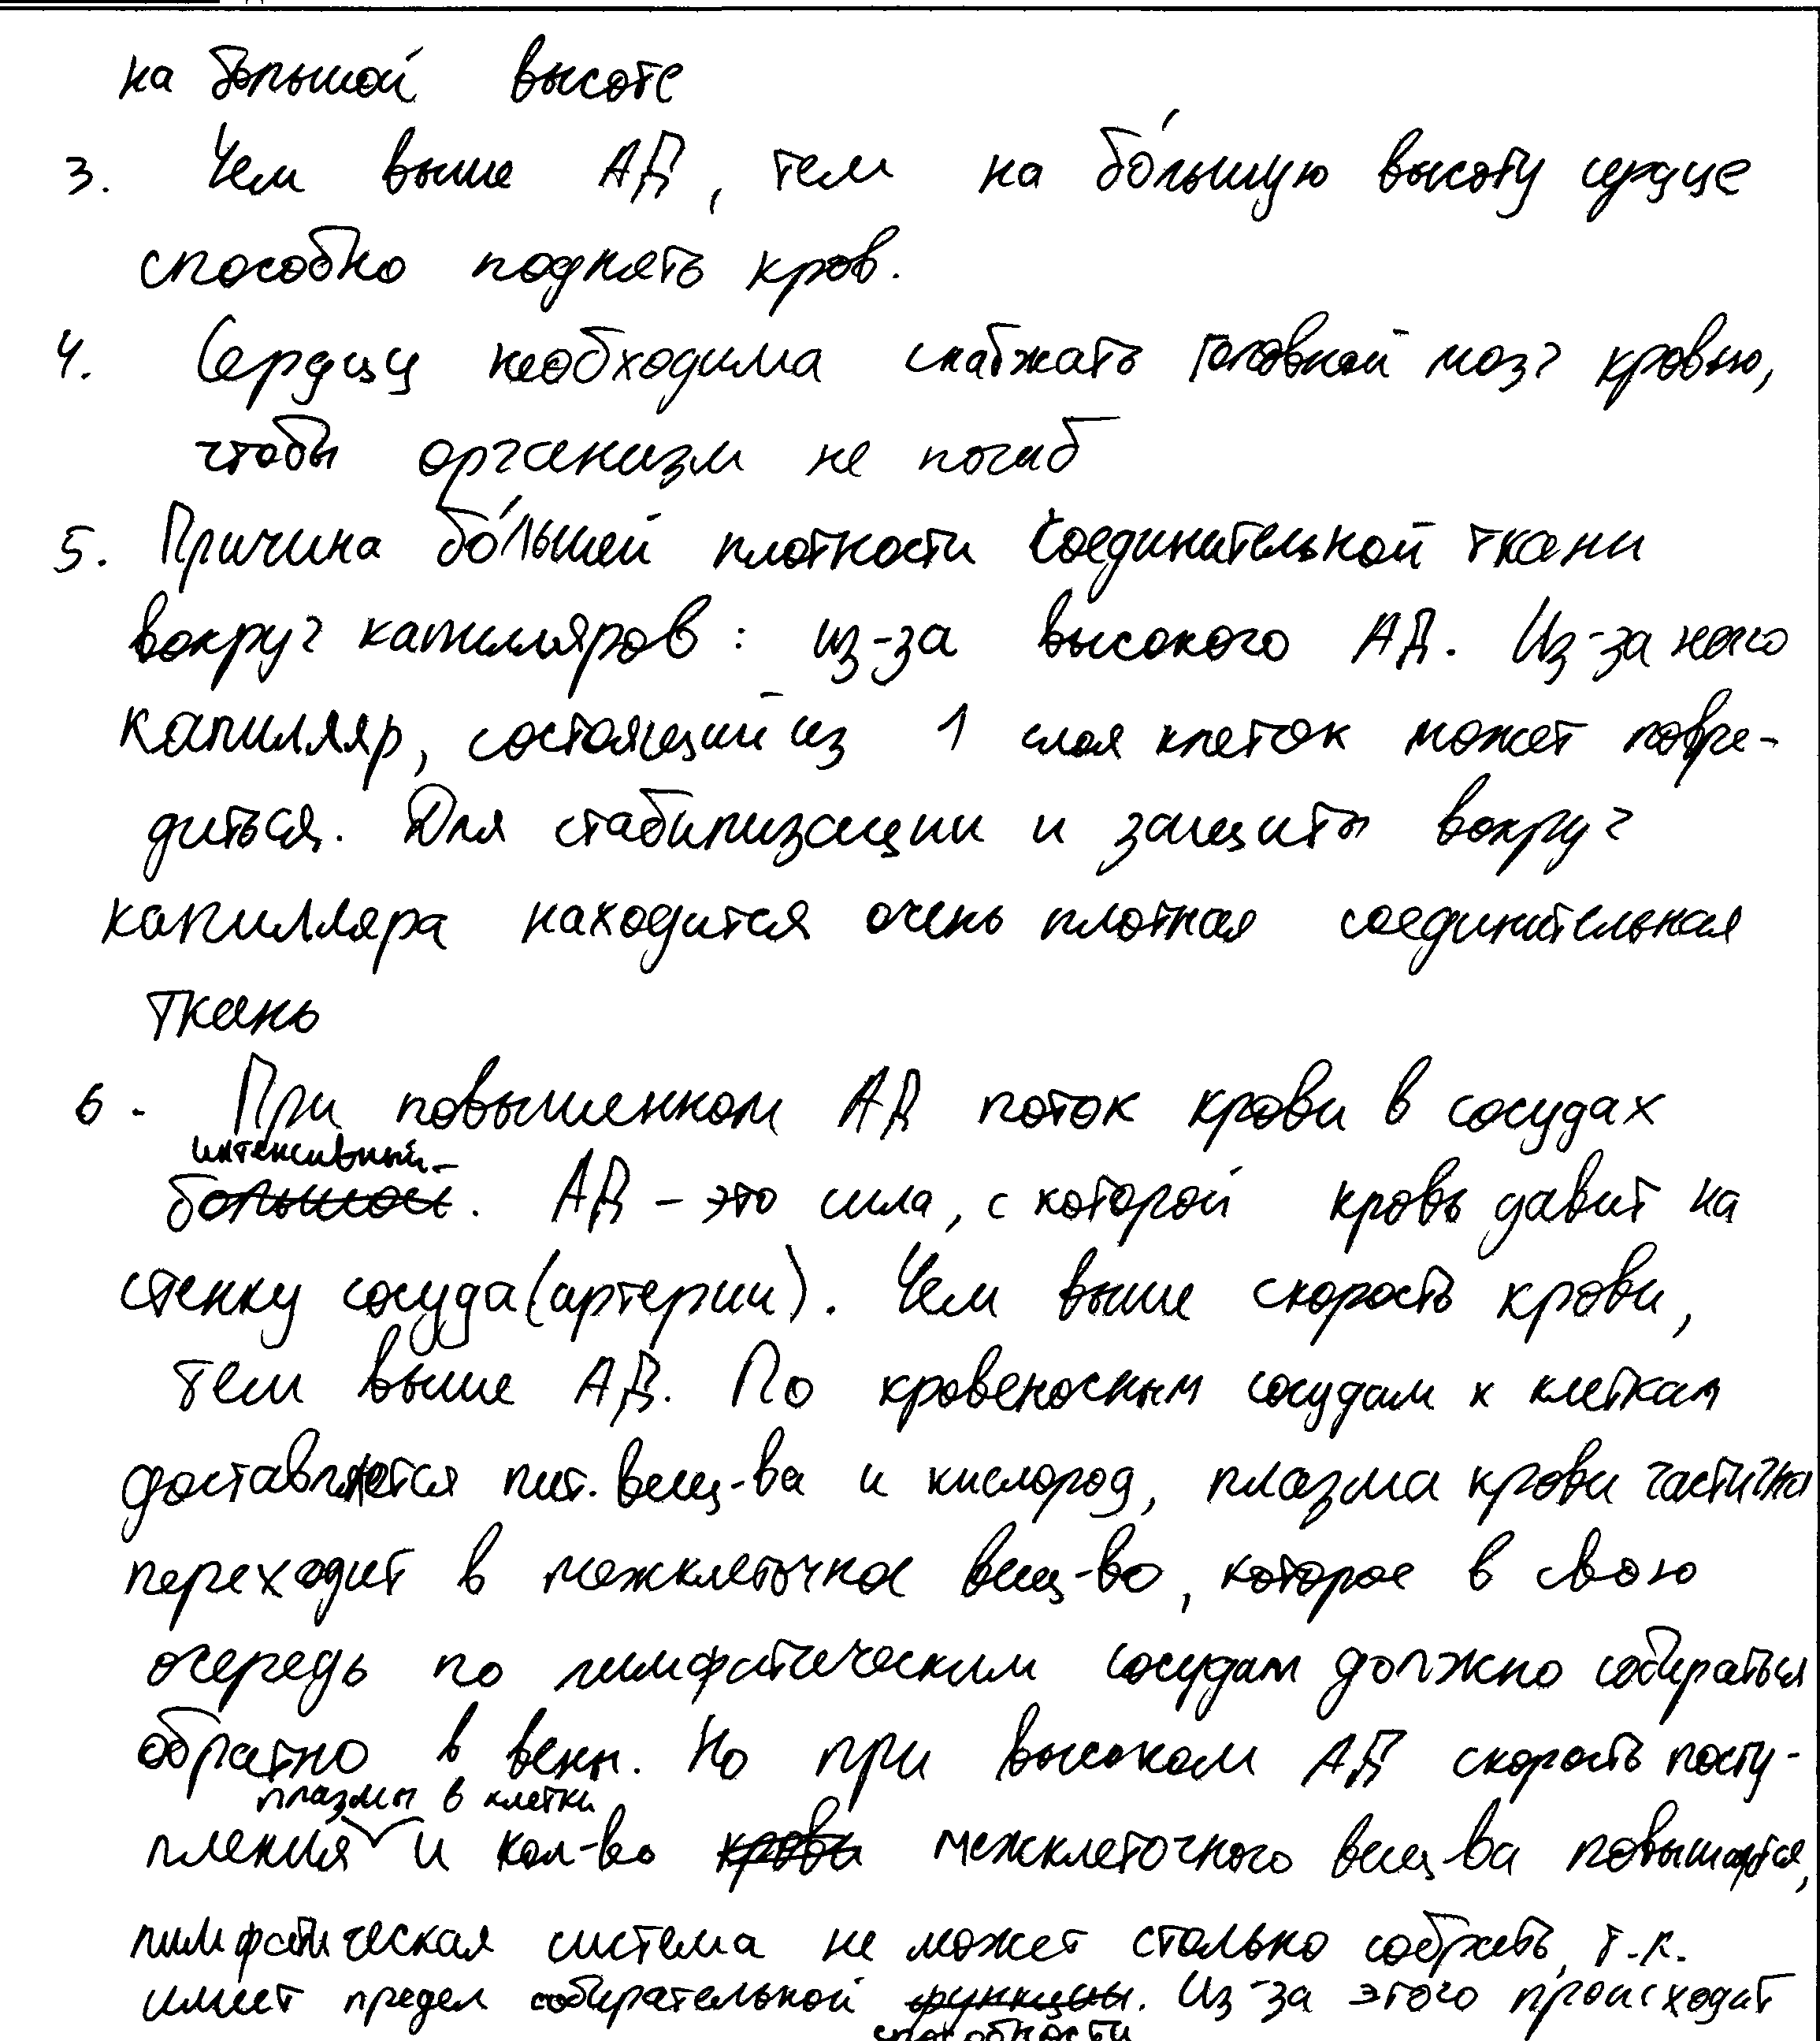 на большой высоте
3. Чем выше АД, тем на бо́льшую высоту сердце
способно поднять кров.
4. Сердцу необходима снабжать головной мозг кровью,
чтобы организм не погиб
5. Причина бо́льшей плотности соединительной ткани
вокруг капилляров: из-за высокого АД. Из-за него
капилляр, состоящий из 1 слоя клеток может повре-
диться. Для стабилизации и защиты вокруг
капилляра находится очень плотная соединительная
ткань
6. При повышенном АД поток крови в сосудах
интенсивный
большой. АД - это сила, с которой кровь давит на
стенку сосуда (артерии). Чем выше скорость крови,
тем выше АД. По кровеносным сосудам к клеткам
доставляется пит. вещ-ва и кислород, плазма крови частично
переходит в межклеточное вещ-во, которое в свою
очередь по лимфатическим сосудам должно собираться
обратно в вены. Но при высоком АД скорость посту-
плазмы в клетки
пления и кол-во крови межклеточного вещ-ва повышается,
лимфатическая система не может столько собрать, т.к.
имеет предел собирательной функции. Из-за этого происходит
способности